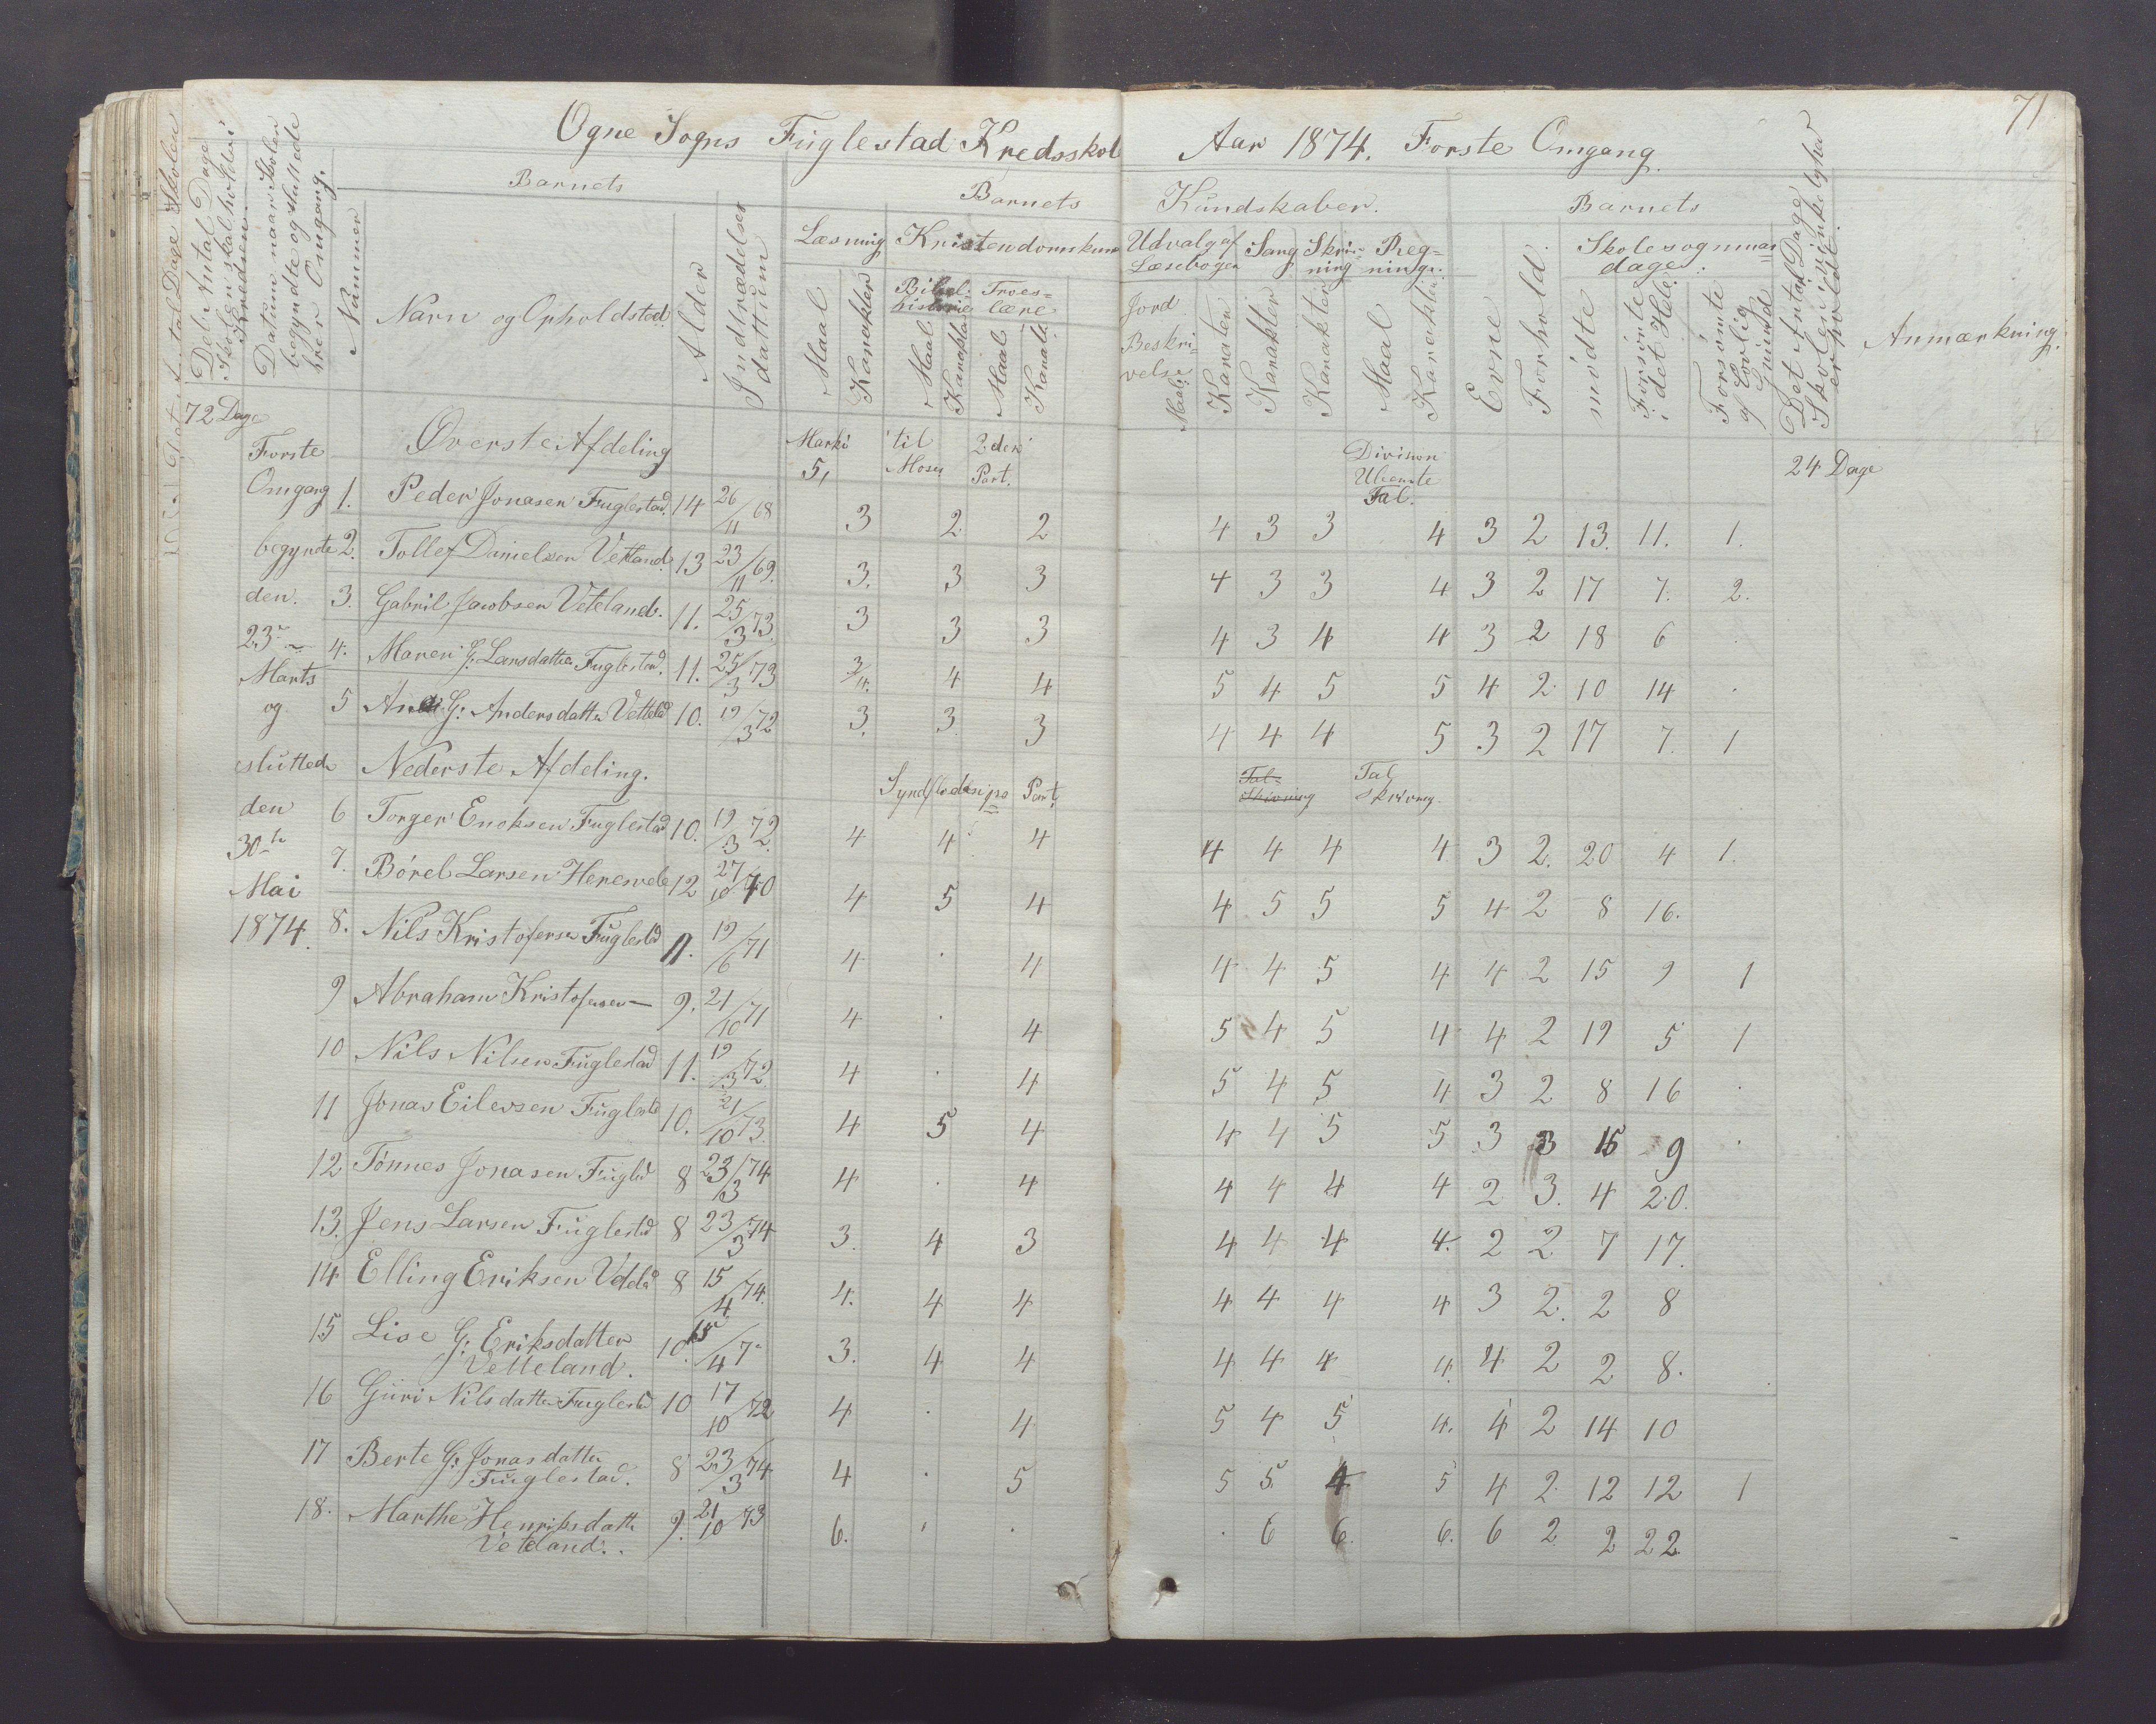 71
Ogne Sogns Fuglestad Kredsskole Aar 1874. Forste Omgang.
Det Antal Dage Skolen
Det Antal Dage
Skolen skal holdes i
Kredsen.
Datum naar Skolen
begyndte og sluttede
hver Omgang.
Barnets
Nummer
Navn og Opholdsted.
Alder
Indtrædelses
datum
Barnets Kundskaber.
Læsning
Maal
Karakter
Kristendomskun
Bibel-
historie
Maal
Karakter
Troes-
lære
Maal
Karakt.
Udvalg af
Læsebogen
Jord
Beskri-
velse
Maal
Karakter
Sang
Karakter
Skriv-
ning
Karakter
Reg-
ning.
Maal
Karakter
Barnets
Evne
Forhold.
Skolesognnas
dage.
mødte
Forsømte
i det Hele.
Forsømte
af Lovlig
Grund
Det Antal Dage
Skolen
er
Anmærkning.
72 Dage
Øverste Afdeling Marki til 2den Division 24 Dage
5, Moses Part. Ubenævnte
Tal.
Forste
Omgang
begyndte
den.
23de
Marts
og
sluttede
den
30te
Mai
1874.
1. Peder Jonasen Fuglestad. 14 26/11 68 3 2 2 4 3 3 4 3 2 13. 11. 1.
2. Tollef Danielsen Vetland. 13 23/11 69. 3. 3 3 4 3 3 4 3 2 17 7. 2.
3. Gabril Jacobsen Veteland. 11. 25/3 73. 3 3 3 4 3 4 4 3 2 18 6 .
4. Maren G. Larsdatter Fuglestad. 11. 25/3 73 3/4. 4 4 5 4 5 5 4 2 10 14 .
5 Ane G: Andersdatter Vetteld 10. 19/3 72 3. 3. 3 4 4 4 5 3 2 17 7. 1
Nederste Afdeling. Syndfloden po Part. Tal- Skivning Tal skrivng.
6 Torger Enoksen Fuglestad 10. 19/3 72. 4 4 4 4 4 4 4 3 2. 20 4 1.
7. Börel Larsen Hereswele 12 27/10 70 4 5 4 4 5 5 5 4 2 8 16.
8. Nils Kristofersen Fuglestd 11. 19/6 71 4 . 4 4 4 5 4 4 2 15 9 1
9 Abraham Kristofersen — 9. 21/10 71 4 . 4 5 4 5 4 4 2 19 5 1
10 Nils Nilsen Fuglestad 11. 19/3 72. 4 . 4 5 4 5 4 3 2 8 16 .
11 Jonas Eilevsen Fuglestd 10. 21/10 73. 4 5 4 4 4 5 5 3 3 15 9 .
12 Tönnes Jonasen Fugled 8 23/3 74 4 . 4 4 4 4 4 2 3. 4 20.
13. Jens Larsen Fuglestd 8 23/3 74 3. 4 3 4 4 4 4. 2 2 7 17.
14 Elling Eriksen Vetteld 8 15/4 74. 4. 4 4 4 4 4 4 3 2. 2 8
15 Lise G: Eriksdatter 10. 15/4 7" 3. 4 4 4 4 4 4. 4 2 2 8.
Vetteland.
16 Guri Nilsdatter Fuglestd 10 17/10 72 4 . 4 5 4 5 4. 4 2 14 10
17 Berte G: Jonasdatter 8 23/3 74 4 . 5 5 5. 4 5 4 2 12 12 1
Fuglestad.
18. Marthe Henriksdattr 9. 21/10 73 6. . . . 6 6. 6. 6 2 2 22
Veteland.